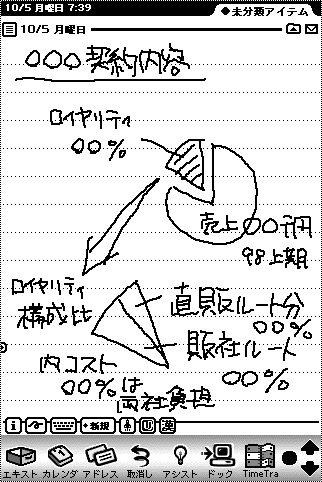 10/5 月曜日 7:39
◆未分類アイテム
10/5 月曜日
○○○契約内容
ロイヤリティ
○○%
売上○○千円
98上期
ロイヤリティ
構成比
直販ルート分
○○%
販社ルート
○○%
内コスト
○○%は
両社負担
◆新規
漢
エキスト カレンダ アドレス 取消し アシスト ドック TimeTra